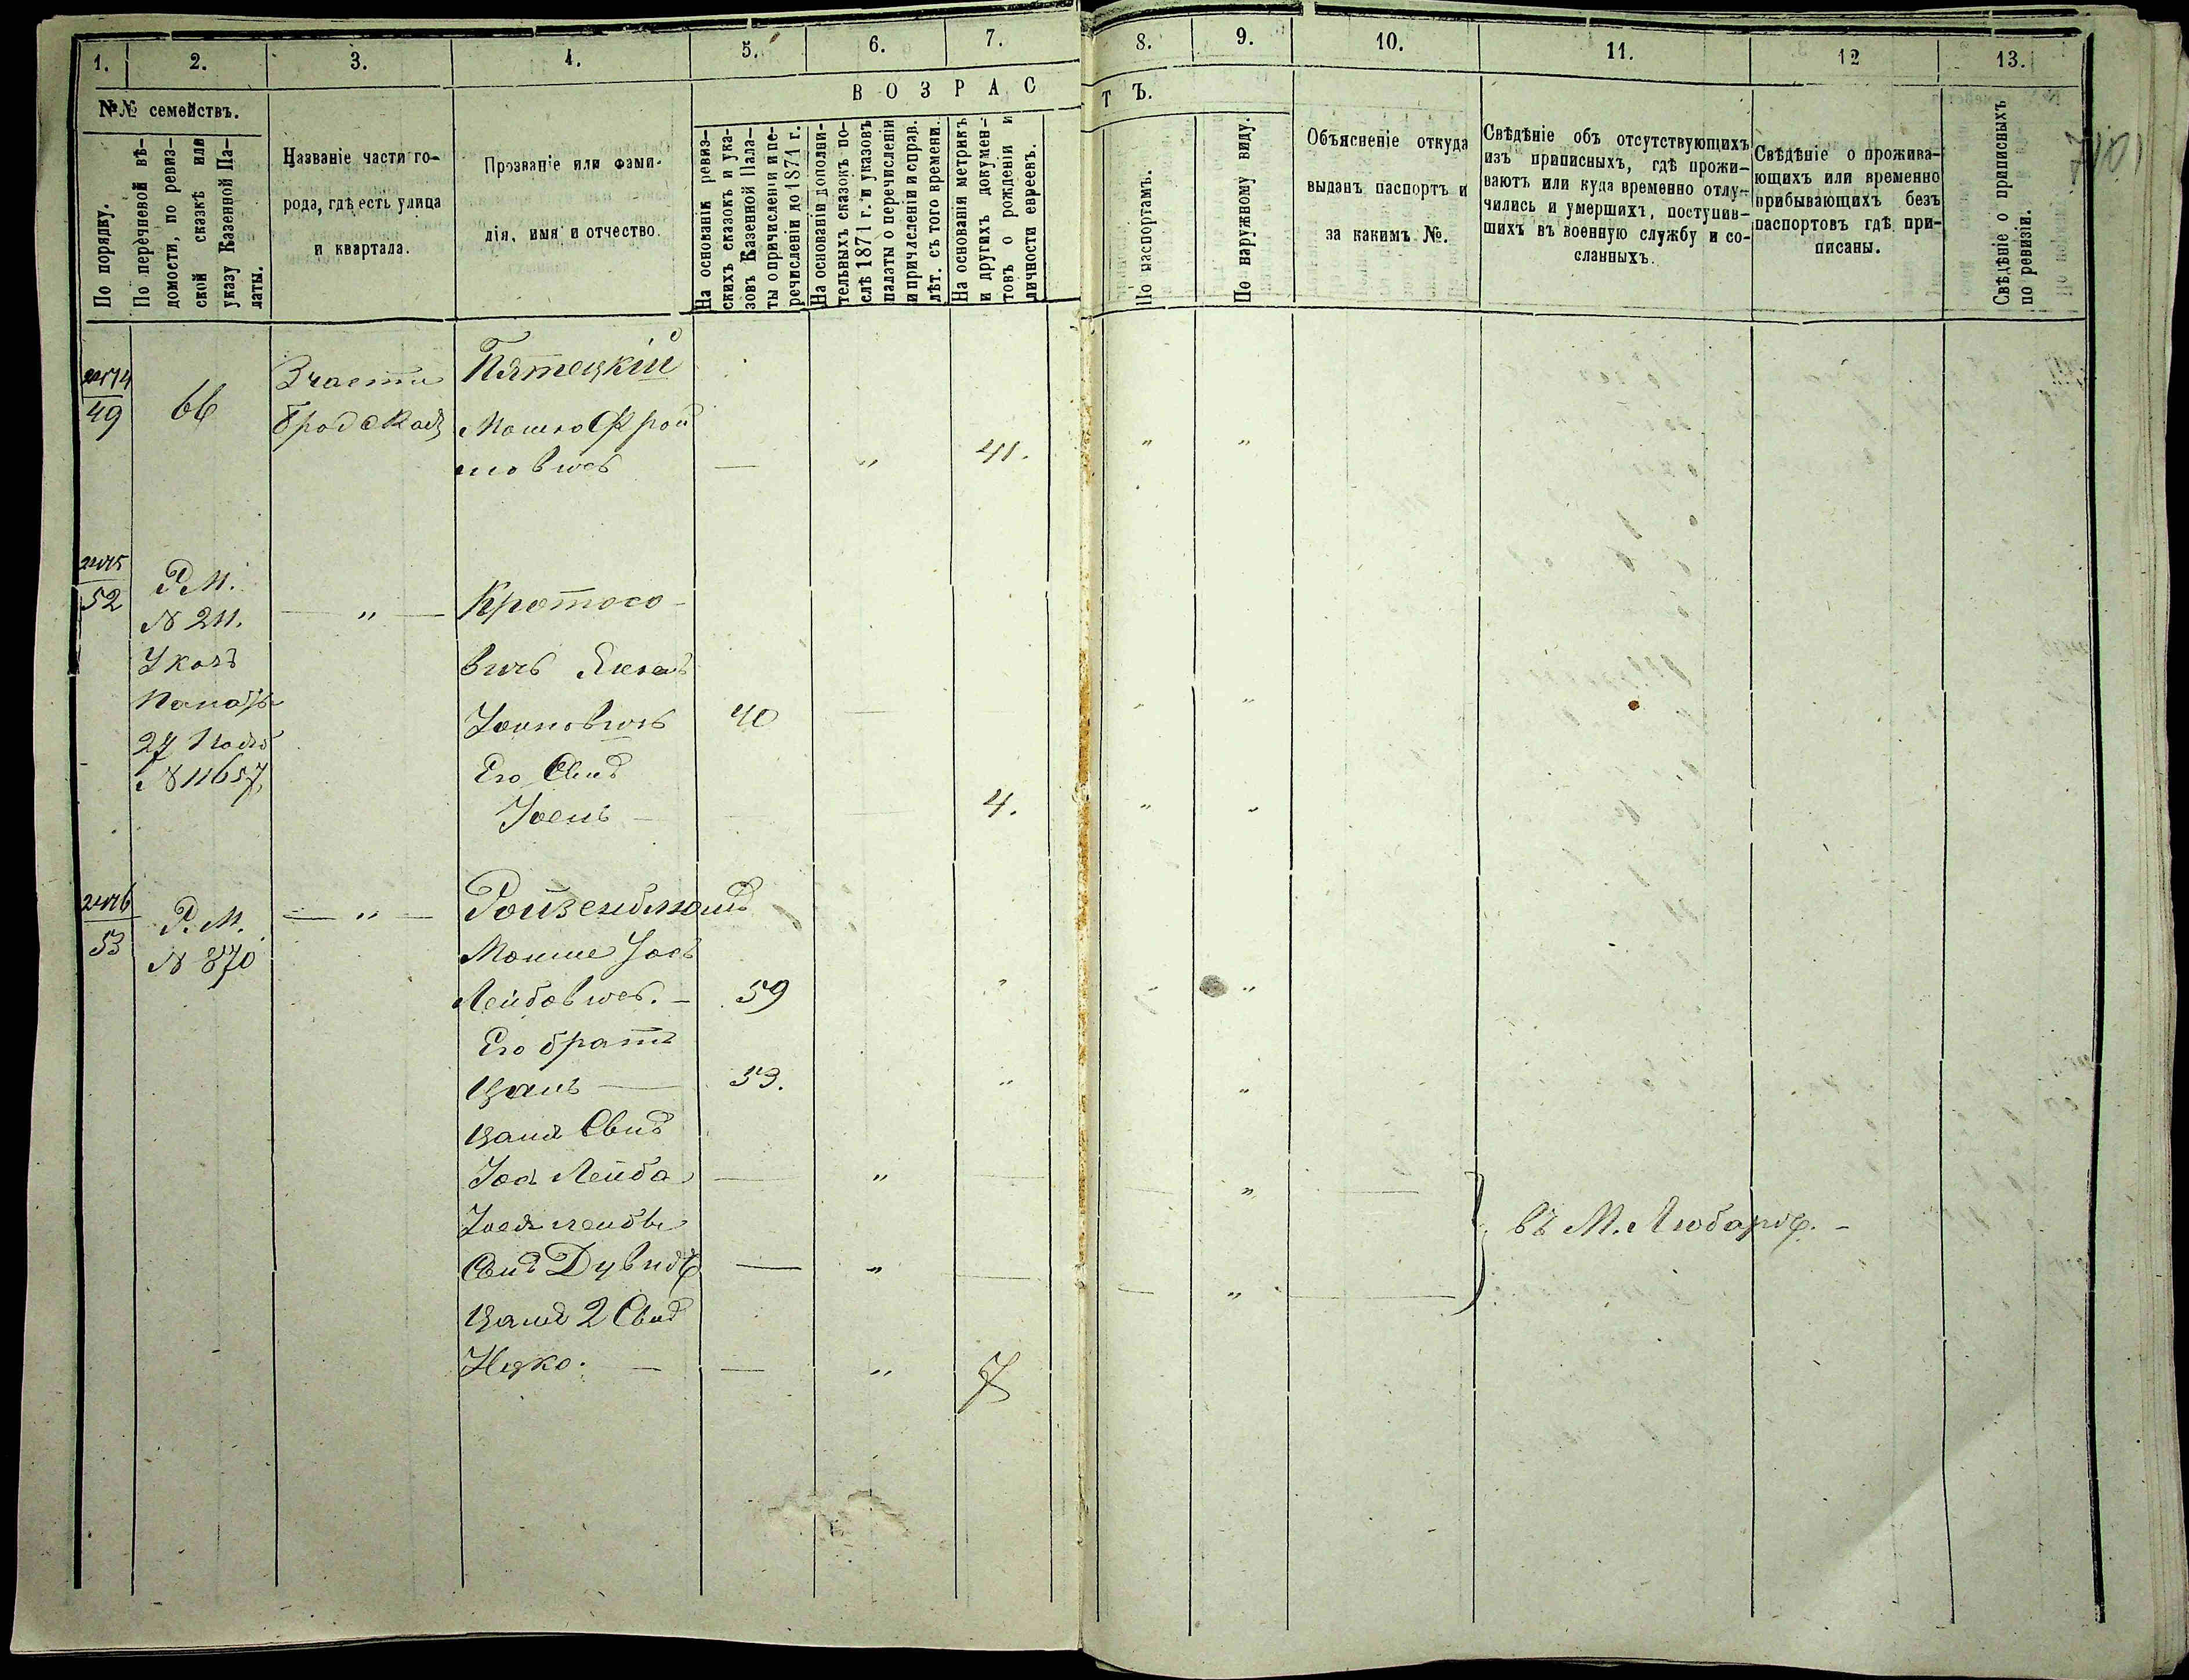 1. 2. 3. 4. 5. 6. 7. 8. 9. 10. 11. 12 13.
№№ семействъ.
По порядку.
По перечневой вѣ-
домости, по ревиз-
ской сказкѣ или
указу Казенной Па-
латы.
Названіе части го-
рода, гдѣ есть улица
и квартала.
Прозваніе или фами-
лія, имя и отчество.
ВОЗРАС
ТЪ.
На основаніи ревиз-
скихъ сказокъ и ука-
зовъ Казенной Пала-
ты о причисленіи и пе-
речисленіи до 1871 г.
На основаніи дополни-
тельныхъ сказокъ по-
слѣ 1871 г. и указовъ
палаты о перечисленіи
и причисленіи и справ.
лѣт. съ того времени.
На основаніи метрикъ
и другихъ докумен-
товъ о рожденіи и
личности евреевъ.
По паспортамъ.
По наружному виду.
Объясненіе откуда
выданъ паспортъ и
за какимъ №.
Свѣдѣніе объ отсутствующихъ
изъ приписныхъ, гдѣ прожи-
ваютъ или куда временно отлу-
чились и умершихъ, поступив-
шихъ въ военную службу и со-
сланныхъ.
Свѣдѣніе о прожива-
ющихъ или временно
прибывающихъ безъ
паспортовъ гдѣ при-
писаны.
Свѣдѣніе о приписныхъ
по ревизіи.
49 66 3 части Пятецкій
Бродская Мошко Фрои
мовичъ — „ 41. „ „
52 Р.М.
N 211. — „ — Кротосо-
Указъ вичъ
Палаты
27 Нояб Іосповичъ 40 — „ „
N 11657 Его Сынъ
Іосль — 4. „ „
53 Р.М. — „ — Ройзенблатъ
N 870 Мошко Іось
Лейбовичъ. — 59 „ „ „
Его братъ
Цаль — 53. „ „
Цаля Сынъ
Іось Лейба — „ — „ —
Іося Лейбы
Сынъ Дувидъ — „ — — „ —
въ М. Любарѣ. —
Цаля 2 Сынъ
Ицко. — — „ 7